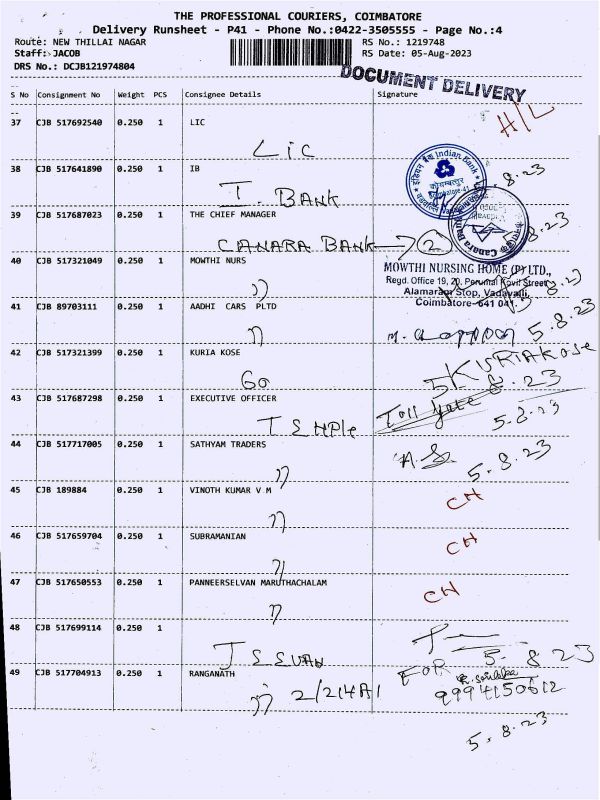 THE PROFESSIONAL COURIERS, COIMBATORE
Delivery Runsheet - P41 - Phone No.:0422-3505555 - Page No.:4
Route: NEW THILLAI NAGAR RS No.: 1219748
Staff: JACOB RS Date: 05-Aug-2023
DRS No.: DCJB121974804
DOCUMENT DELIVERY
S No Consignment No Weight PCS Consignee Details Signature
37 CJB 517692540 0.250 1 LIC H/L
LIC
38 CJB 517641890 0.250 1 IB
इंडियन बैंक Indian Bank
I. BANK 5.8.23
39 CJB 517687023 0.250 1 THE CHIEF MANAGER
Canara Bank
CANARA BANK → 2 5.8.23
40 CJB 517321049 0.250 1 MOWTHI NURS
MOWTHI NURSING HOME (P) LTD.,
Regd. Office 19, 20, Perumal Kovil Street,
Alamaram Stop, Vadavalli,
Coimbatore-641 041.
5.8.23
41 CJB 89703111 0.250 1 AADHI CARS PLTD
5.8.23
42 CJB 517321399 0.250 1 KURIA KOSE
KURIAKOSE
GO 5.8.23
43 CJB 517687298 0.250 1 EXECUTIVE OFFICER
Toll gate
TEMPLE 5.8.23
44 CJB 517717005 0.250 1 SATHYAM TRADERS
A.S. 5.8.23
45 CJB 189884 0.250 1 VINOTH KUMAR V M
CH
46 CJB 517659704 0.250 1 SUBRAMANIAN
CH
47 CJB 517650553 0.250 1 PANNEERSELVAN MARUTHACHALAM
CH
48 CJB 517699114 0.250 1
JEEVAN 5.8.23
49 CJB 517704913 0.250 1 RANGANATH FOR
2/214A1 9994150612
5.8.23